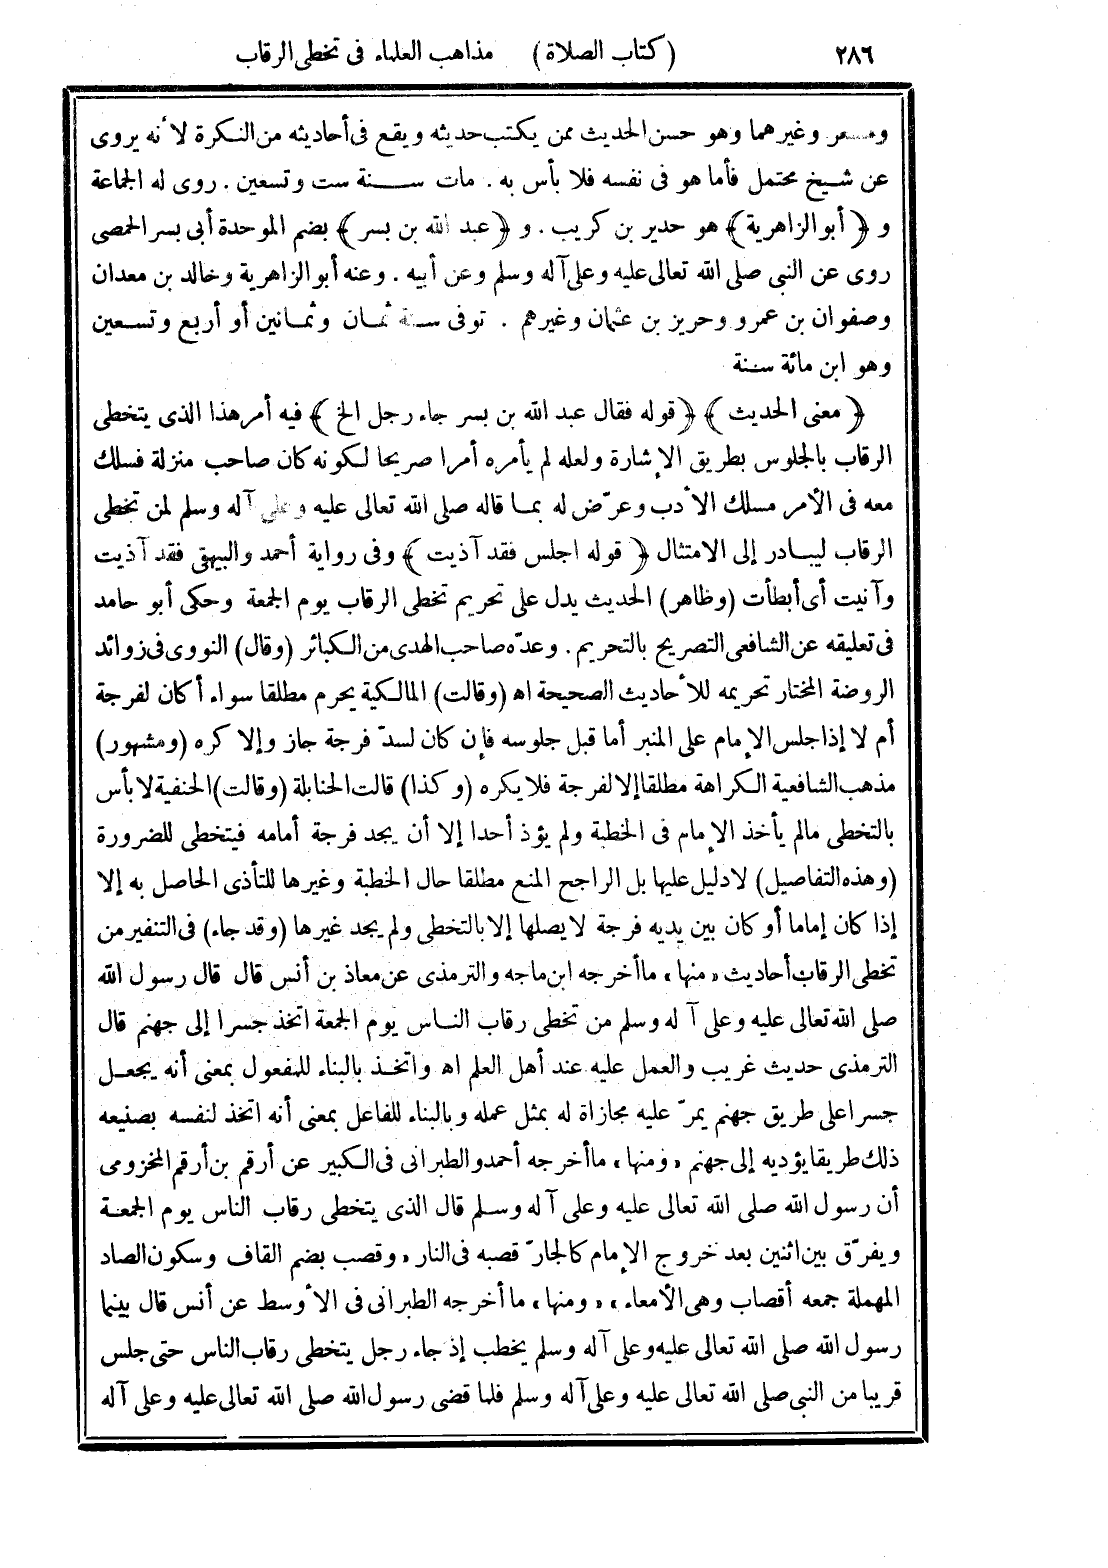 ٢٨٦ (كتاب الصلاة) مذاهب العلماء فى تخطى الرقاب
ومسعر وغيرهما وهو حسن الحديث ممن يكتب حديثه ويقع فى أحاديثه من النكرة لأنه يروى
عن شيخ محتمل فأما هو فى نفسه فلا بأس به . مات سنة ست وتسعين . روى له الجماعة
و ﴿ أبو الزاهرية ﴾ هو حدير بن كريب . و ﴿ عبد الله بن بسر ﴾ بضم الموحدة أبى بسر الحمصى
روى عن النبى صلى الله تعالى عليه وعلى آله وسلم وعن أبيه . وعنه أبو الزاهرية وخالد بن معدان
وصفوان بن عمرو وحريز بن عثمان وغيرهم . توفى سنة ثمان وثمانين أو أربع وتسعين
وهو ابن مائة سنة
﴿ معنى الحديث ﴾ ﴿ قوله فقال عبد الله بن بسر جاء رجل الخ ﴾ فيه أمر هذا الذى يتخطى
الرقاب بالجلوس بطريق الإشارة ولعله لم يأمره أمرا صريحا لكونه كان صاحب منزلة فسلك
معه فى الأمر مسلك الأدب وعرّض له بما قاله صلى الله تعالى عليه وعلى آله وسلم لمن تخطى
الرقاب ليبادر إلى الامتثال ﴿ قوله اجلس فقد آذيت ﴾ وفى رواية أحمد والبيهقى فقد آذيت
وآنيت أى أبطأت (وظاهر) الحديث يدل على تحريم تخطى الرقاب يوم الجمعة وحكى أبو حامد
فى تعليقه عن الشافعى التصريح بالتحريم . وعدّه صاحب الهدى من الكبائر (وقال) النووى فى زوائد
الروضة المختار تحريمه للأحاديث الصحيحة اه (وقالت) المالكية يحرم مطلقا سواء أكان لفرجة
أم لا إذا جلس الإمام على المنبر أما قبل جلوسه فإن كان لسدّ فرجة جاز وإلا كره (ومشهور)
مذهب الشافعية الكراهة مطلقا إلا لفرجة فلا يكره (وكذا) قالت الحنابلة (وقالت) الحنفية لا بأس
بالتخطى مالم يأخذ الإمام فى الخطبة ولم يؤذ أحدا إلا أن يجد فرجة أمامه فيتخطى للضرورة
(وهذه التفاصيل) لا دليل عليها بل الراجح المنع مطلقا حال الخطبة وغيرها للتأذى الحاصل به إلا
إذا كان إماما أو كان بين يديه فرجة لا يصلها إلا بالتخطى ولم يجد غيرها (وقد جاء) فى التنفير من
تخطى الرقاب أحاديث «منها» ما أخرجه ابن ماجه والترمذى عن معاذ بن أنس قال قال رسول الله
صلى الله تعالى عليه وعلى آله وسلم من تخطى رقاب الناس يوم الجمعة اتخذ جسرا إلى جهنم قال
الترمذى حديث غريب والعمل عليه عند أهل العلم اه واتخذ بالبناء للمفعول بمعنى أنه يجعل
جسرا على طريق جهنم يمرّ عليه مجازاة له بمثل عمله وبالبناء للفاعل بمعنى أنه اتخذ لنفسه بصنيعه
ذلك طريقا يؤديه إلى جهنم «ومنها» ما أخرجه أحمد والطبرانى فى الكبير عن أرقم بن أرقم المخزومى
أن رسول الله صلى الله تعالى عليه وعلى آله وسلم قال الذى يتخطى رقاب الناس يوم الجمعة
ويفرّق بين اثنين بعد خروج الإمام كالجارّ قصبه فى النار «وقصب بضم القاف وسكون الصاد
المهملة جمعه أقصاب وهى الأمعاء» «ومنها» ما أخرجه الطبرانى فى الأوسط عن أنس قال بينما
رسول الله صلى الله تعالى عليه وعلى آله وسلم يخطب إذ جاء رجل يتخطى رقاب الناس حتى جلس
قريبا من النبى صلى الله تعالى عليه وعلى آله وسلم فلما قضى رسول الله صلى الله تعالى عليه وعلى آله